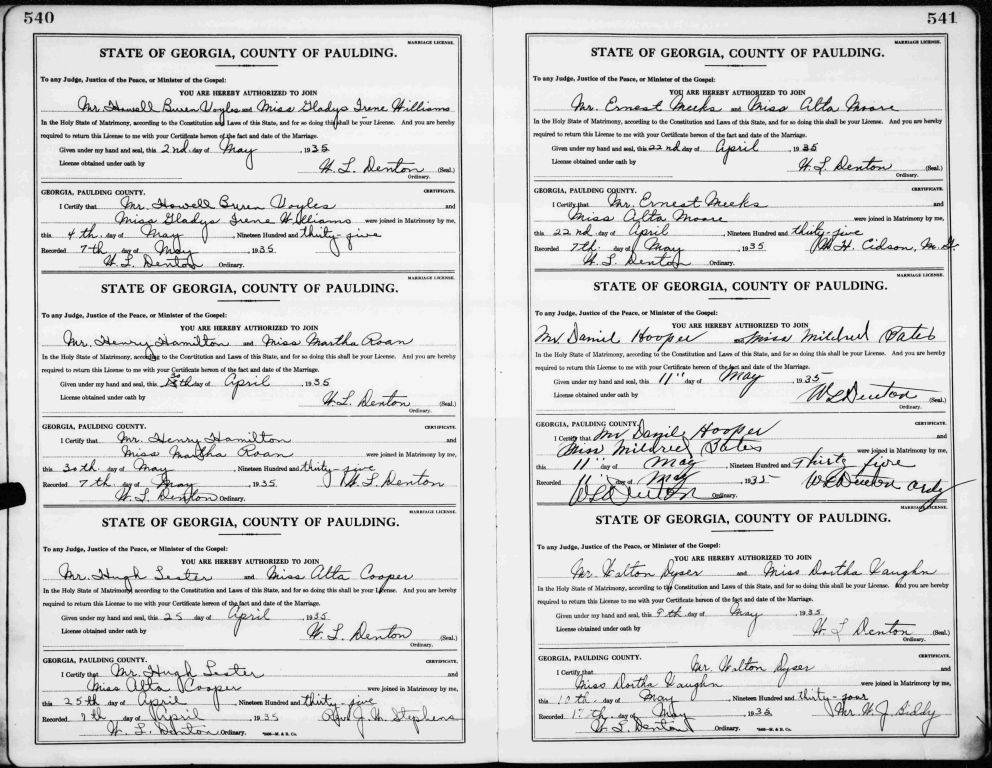 540
MARRIAGE LICENSE.
STATE OF GEORGIA, COUNTY OF PAULDING.
To any Judge, Justice of the Peace, or Minister of the Gospel:
YOU ARE HEREBY AUTHORIZED TO JOIN
Mr. Howell Buren Voyles and Miss Gladys Irene Williams
In the Holy State of Matrimony, according to the Constitution and Laws of this State, and for so doing this shall be your License. And you are hereby
required to return this License to me with your Certificate hereon of the fact and date of the Marriage.
Given under my hand and seal, this 2nd. day of May , 1935
License obtained under oath by W. L. Denton (Seal.)
Ordinary.
GEORGIA, PAULDING COUNTY. CERTIFICATE.
I Certify that Mr. Howell Buren Voyles and
Miss Gladys Irene Williams were joined in Matrimony by me,
this 4th. day of May , Nineteen Hundred and thirty-five
Recorded 7th day of May 1935.
W. L. Denton Ordinary.
MARRIAGE LICENSE.
STATE OF GEORGIA, COUNTY OF PAULDING.
To any Judge, Justice of the Peace, or Minister of the Gospel:
YOU ARE HEREBY AUTHORIZED TO JOIN
Mr. Henry Hamilton and Miss Martha Roan
In the Holy State of Matrimony, according to the Constitution and Laws of this State, and for so doing this shall be your License. And you are hereby
required to return this License to me with your Certificate hereon of the fact and date of the Marriage.
Given under my hand and seal, this 30th day of April , 1935
License obtained under oath by W. L. Denton (Seal.)
Ordinary.
GEORGIA, PAULDING COUNTY. CERTIFICATE.
I Certify that Mr. Henry Hamilton and
Miss Martha Roan were joined in Matrimony by me,
this 30th. day of May , Nineteen Hundred and thirty-five
Recorded 7th. day of May 1935. W. L. Denton
W. L. Denton Ordinary.
MARRIAGE LICENSE.
STATE OF GEORGIA, COUNTY OF PAULDING.
To any Judge, Justice of the Peace, or Minister of the Gospel:
YOU ARE HEREBY AUTHORIZED TO JOIN
Mr. Hugh Lester and Miss Alta Cooper
In the Holy State of Matrimony, according to the Constitution and Laws of this State, and for so doing this shall be your License. And you are hereby
required to return this License to me with your Certificate hereon of the fact and date of the Marriage.
Given under my hand and seal, this 25 day of April , 1935
License obtained under oath by W. L. Denton (Seal.)
Ordinary.
GEORGIA, PAULDING COUNTY. CERTIFICATE.
I Certify that Mr. Hugh Lester and
Miss Alta Cooper were joined in Matrimony by me,
this 25th day of April , Nineteen Hundred and thirty-five
Recorded day of April 1935 Rev. J. W. Stephens
W. L. Denton Ordinary.
541
MARRIAGE LICENSE.
STATE OF GEORGIA, COUNTY OF PAULDING.
To any Judge, Justice of the Peace, or Minister of the Gospel:
YOU ARE HEREBY AUTHORIZED TO JOIN
Mr. Ernest Meeks and Miss Alta Moore
In the Holy State of Matrimony, according to the Constitution and Laws of this State, and for so doing this shall be your License. And you are hereby
required to return this License to me with your Certificate hereon of the fact and date of the Marriage.
Given under my hand and seal, this 22nd day of April , 1935
License obtained under oath by W. L. Denton (Seal.)
Ordinary.
GEORGIA, PAULDING COUNTY. CERTIFICATE.
I Certify that Mr. Ernest Meeks and
Miss Alta Moore were joined in Matrimony by me,
this 22nd. day of April , Nineteen Hundred and thirty-five
Recorded 7th. day of May 1935 W. H. Eidson, M. G.
W. L. Denton Ordinary.
MARRIAGE LICENSE.
STATE OF GEORGIA, COUNTY OF PAULDING.
To any Judge, Justice of the Peace, or Minister of the Gospel:
YOU ARE HEREBY AUTHORIZED TO JOIN
Mr Daniel Hooper and Miss Mildred Bates
In the Holy State of Matrimony, according to the Constitution and Laws of this State, and for so doing this shall be your License. And you are hereby
required to return this License to me with your Certificate hereon of the fact and date of the Marriage.
Given under my hand and seal, this 11" day of May 1935
License obtained under oath by W L Denton (Seal.)
Ordinary.
GEORGIA, PAULDING COUNTY. CERTIFICATE.
I Certify that Mr Danile Hooper and
Miss Mildred Bates were joined in Matrimony by me,
this 11" day of May , Nineteen Hundred and Thirty five
Recorded 11" day of May 1935 W L Denton Ordy
W L Denton Ordinary.
MARRIAGE LICENSE.
STATE OF GEORGIA, COUNTY OF PAULDING.
To any Judge, Justice of the Peace, or Minister of the Gospel:
YOU ARE HEREBY AUTHORIZED TO JOIN
Mr. Walton Dyser and Miss Dortha Vaughn
In the Holy State of Matrimony, according to the Constitution and Laws of this State, and for so doing this shall be your License. And you are hereby
required to return this License to me with your Certificate hereon of the fact and date of the Marriage.
Given under my hand and seal, this 9th day of May , 1935
License obtained under oath by W. L Denton (Seal.)
Ordinary.
GEORGIA, PAULDING COUNTY. CERTIFICATE.
I Certify that Mr. Walton Dyser and
Miss Dortha Vaughn were joined in Matrimony by me,
this 10th. day of May , Nineteen Hundred and thirty-four
Recorded 17th. day of May 1935 Mr. W. J. Biddy
W. L. Denton Ordinary.